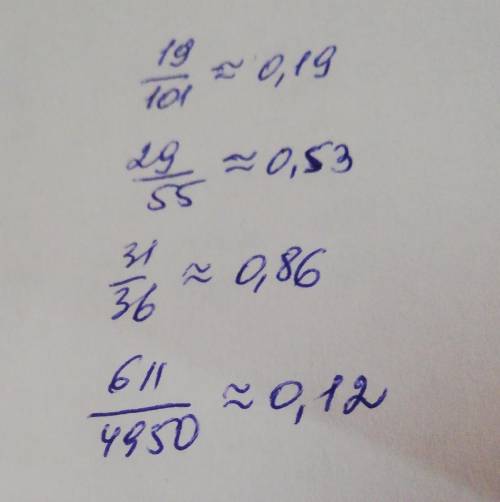 19/101 ≈ 0,19
29/55 ≈ 0,53
31/36 ≈ 0,86
611/4950 ≈ 0,12